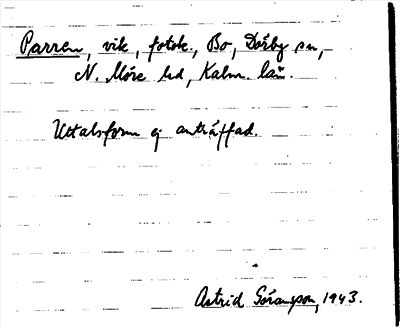 Parren, vik, fotok., Bo, Dörby sn,
N. Möre hd, Kalm. län.
Uttalsform ej anträffad.
Astrid Göransson, 1943.